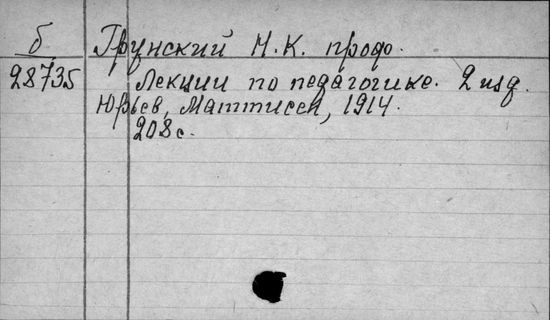 б Грунский Н.К. проф.
28735 Лекции по педагогике. 2 изд.
Юрьев, Маттисен, 1914.
208 с.